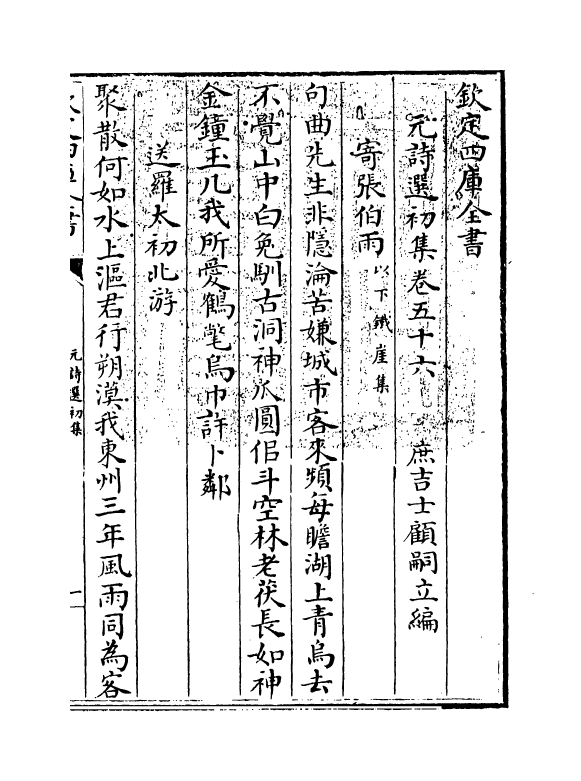 欽定四庫全書
元詩選初集卷五十六 庶吉士顧嗣立編
寄張伯雨 以下鐵崖集
句曲先生非隱淪苦嫌城市客來頻每瞻湖上青鳥去
不覺山中白兔馴古洞神瓜圓佀斗空林老茯長如神
金鐘玉几我所愛鶴氅烏巾許卜鄰
送羅太初北游
聚散何如水上漚君行朔漠我東州三年風雨同為客
元詩選初集
一